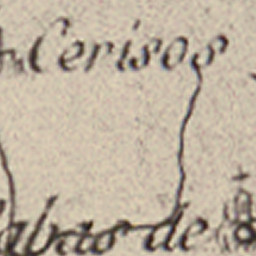 Cerisos
abao de